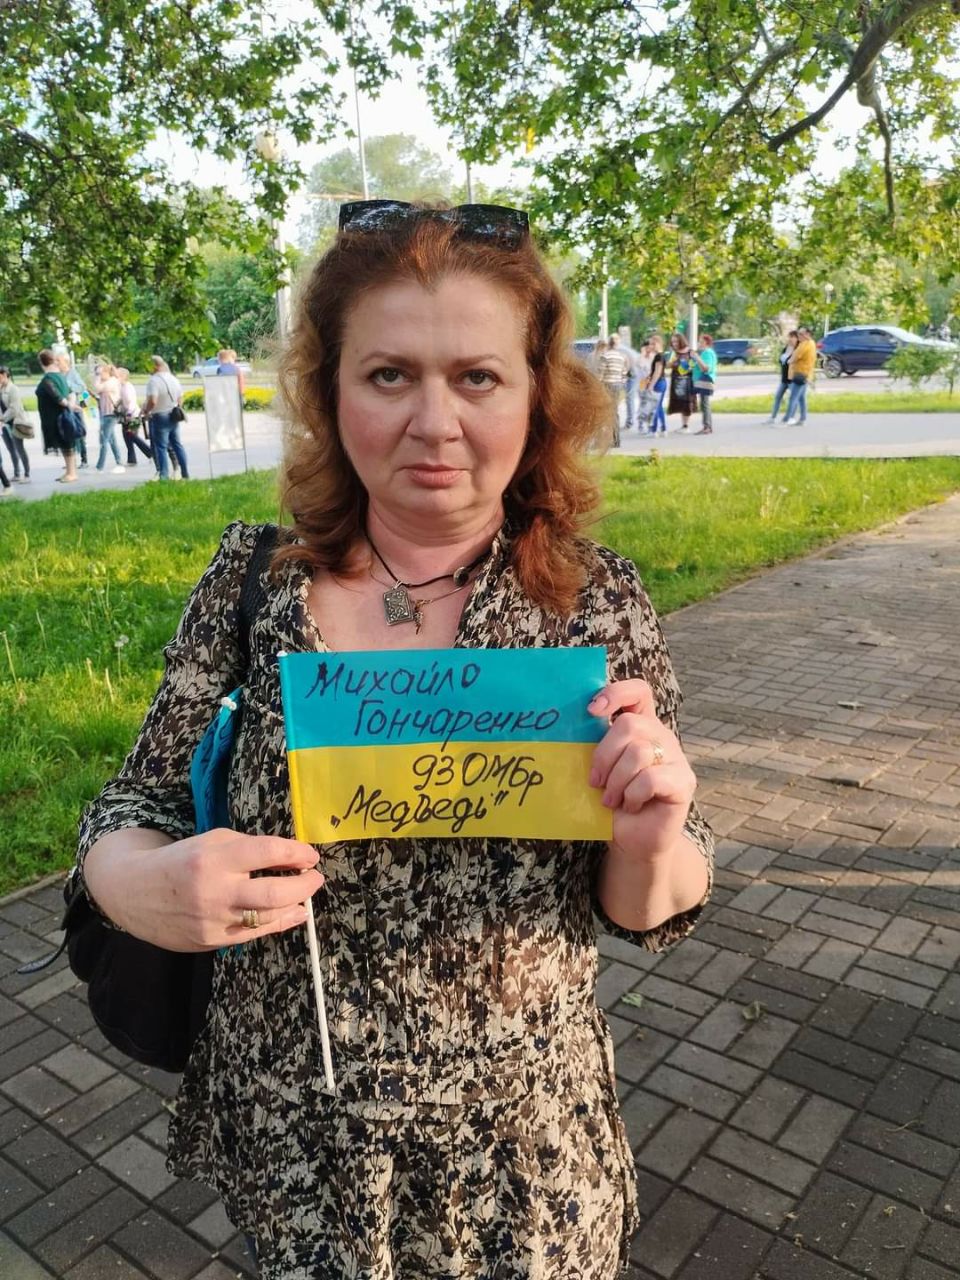 Михайло
Гончаренко
93 ОМБр
„Медведь"